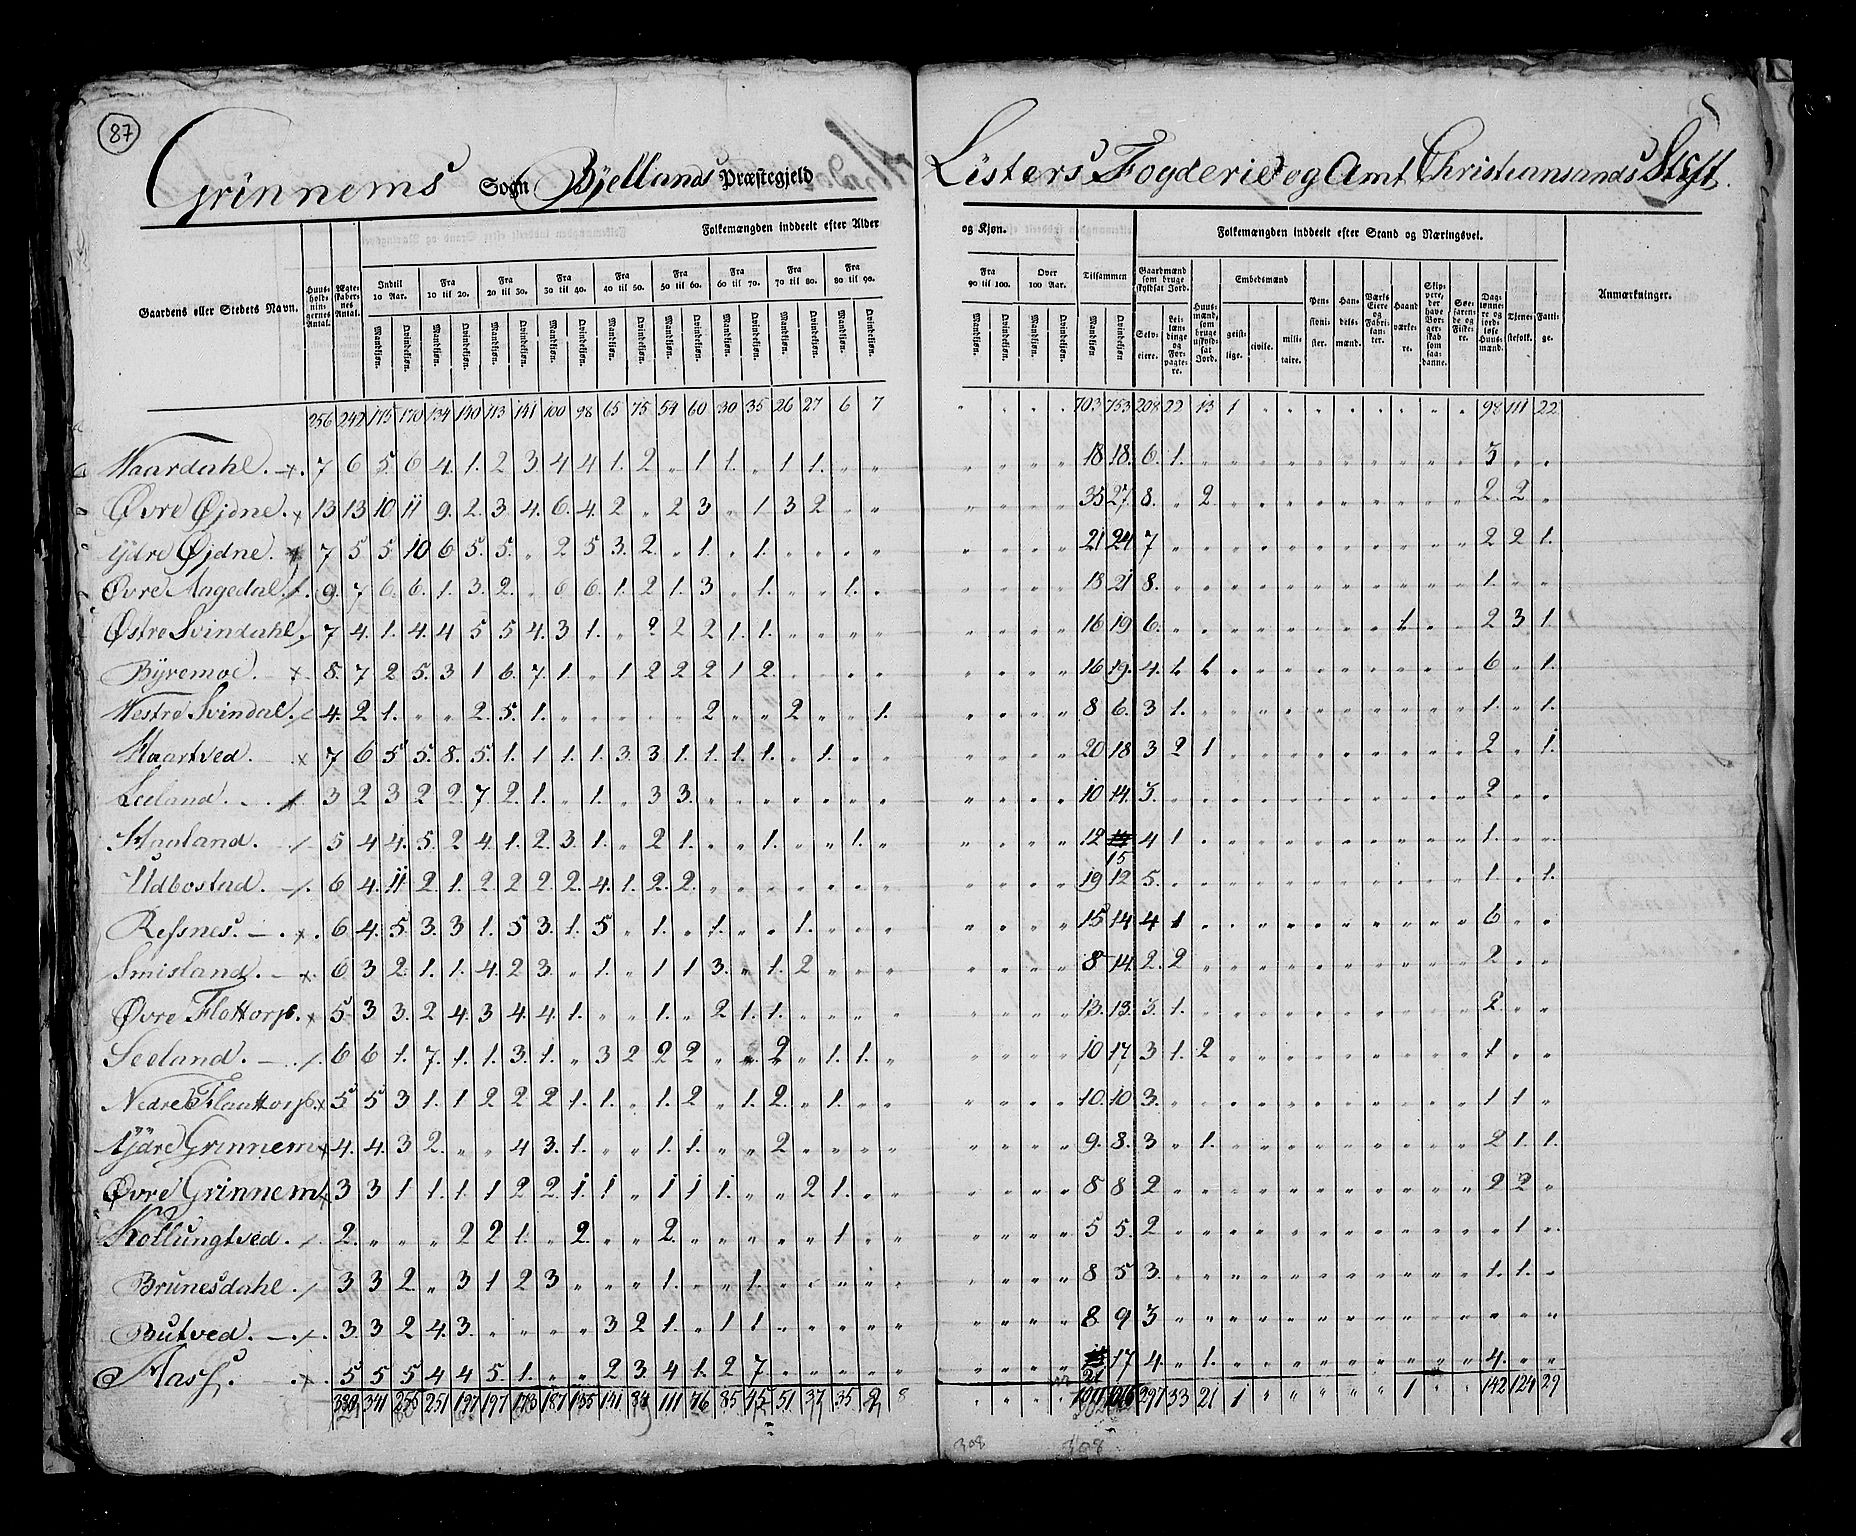 87
Grinnems Sogn Bjellands Præstegjeld Listers Fogderie og Amt Christiansands Stift.
Folkemængden inddeelt efter Alder og Kjøn. Folkemængden inddeelt efter Stand og Næringsvei.
Gaardens eller Stedets Navn. Huusholdningernes Antal. Ægteskabernes Antal. Indtil 10 Aar. Fra 10 til 20. Fra 20 til 30. Fra 30 til 40. Fra 40 til 50. Fra 50 til 60. Fra 60 til 70. Fra 70 til 80. Fra 80 til 90. Fra 90 til 100. Over 100 Aar. Tilsammen Gaardmænd som bruge skyldsat Jord. Huusmænd, som bruge uskyldsat Jord. Embedsmænd Pensionister. Handelsmænd. Værks Eiere og Fabrikanter. Haandværkere. Skippere, der have Borgerskab som saadanne. Søefarende og Fiskere. Daglønnere og jordløse Huusmænd. Tjenestefolk. Fattige. Anmærkninger.
Mandkjøn. Qvindekjøn. Mandkjøn. Qvindekjøn. Mandkjøn. Qvindekjøn. Mandkjøn. Qvindekjøn. Mandkjøn. Qvindekjøn. Mandkjøn. Qvindekjøn. Mandkjøn. Qvindekjøn. Mandkjøn. Qvindekjøn. Mandkjøn. Qvindekjøn. Mandkjøn. Qvindekjøn. Mandkjøn. Qvindekjøn. Mandkjøn. Qvindekjøn. Selveiere. Leilændinge og Forpagtere. geistlige. civile. militaire.
256 242 175 170 134 140 113 141 100 98 65 75 54 60 30 35 26 27 6 7 " " " " 703 753 208 22 13 1 " " " " " " " " 98 111 22
Haardahl. 7 6 5. 6 4. 1. 2 3. 4 4 1. 2 " 1 1. " 1 1. " " " " " " 18 18. 6. 1. " " " " " " " " " " 3 " "
Øvre Øjdne. 13 13 10 11 9. 2. 3 4. 6. 4. 2 " 2 3 " 1 3 2 " " " " " " 35 27. 8. " 2 " " " " " " " " " 2 2 "
Ydre Øjdne. 7 5 5. 10 6 5. 5. " 2 5 3. 2. " 1. " 1. " " " " " " " " 21 24 7 " " " " " " " " " " " 2 2 1.
Øvre Aagedal. 9. 7 6. 6. 1. 3. 2. " 6 6. 1. 2 1. 3 " 1. " " 1. " " " " " 18 21 8. " " " " " " " " " " " 1. " "
Østre Svindahl. 7 4. 1. 4. 4 5 5 4. 3 1. " 2 2 2 1. 1. " " " " " " " " 16 19 6. " " " " " " " " 1 " " 2 3 1
Byremoe. 8. 7 2 5. 3 1 6. 7. 1. " 1 2 2 2 1 2. " " " " " " " " 16 19. 4. 1. 1. " " " " " " " " " 6 " 1.
Vestre Svindal. 4. 2 1. " " 2. 5. 1. " " " " " 2 " " 2 " " 1. " " " " 8 6. 3 1. " " " " " " " " " " 1. " 1.
Haartved. 7 6 5 5. 8. 5. 1. 1 1. 1. 3. 3 1. 1. 1. 1. " 1. " " " " " " 20 18. 3 2 1 " " " " " " " " " 2 " 1.
Leeland. 3 2 3. 2 2. 7 2. 1. " 1. " 3 3. " " " " " " " " " " " 10 14. 3. " " " " " " " " " " " 2 " "
Haaland. 5 4 4. 5. 2 4. 1. 2. 3. 1. " 2 1. " " 1. " " 1. " " " " " 12 15 4 1 " " " " " " " " " " 1. " "
Udbostad. 6 4. 11 2. 1. 2 2 2 2. 4. 1. 2. 2. " " " " " " " " " " " 19 12 5. " " " " " " " " " " " 1. " 1.
Refsnes. 6 4. 5. 3. 3 1. 5 3. 1. 5 " 1. " 1. " " 1. " " " " " " " 15 14 4 1 " " " " " " " " " " 6 " "
Smisland. 6 3 2. 1. 1. 4. 2 3. " 1. " 1 1 3. " 1. 2 " " " " " " " 8 14. 2. 2 " " " " " " " " " " 2 " "
Øvre Flottorp. 5. 3 3. 2 4. 3 4. 4 1. " " 1. " 2 1. 1. " " " " " " " " 13. 13. 3. 1. " " " " " " " " " " 2. " "
Seeland. 6 6 1. 7. 1. 1. 3. 1. " 3 2 2 2 " " 2. " 1. 1. " " " " " 10 17 3 1. 2 " " " " " " " " " 1 " "
Nedre Flaattorp. 5. 5 3 1. 1 2 2 2 1. 1. " 1. 2 " 1. 2. " 1. " " " " " " 10. 10 3. " " " " " " " " " " " 1 1. "
Ydre Grinnem 4. 4. 3 2. " " 4 3. 1. " " 1. 1. " " 2 " " " " " " " " 9. 8. 3 " 1. " " " " " " " " " 2 1. 1.
Øvre Grinnem 3 3 1 1. 1. 1 2 2. 1. 1 " 1 1 1. 1. " " 2 1. " " " " " 8 8 2 " " " " " " " " " " " 2 2. "
Kollungtved. 2. " " " 2 2 1. " 2. " " 2. " " " " " 1 " " " " " " 5 5. 2 " " " " " " " " " " " " 1 "
Brunesdahl. 3 3 2. " 3 1 2 3 " " " 1. " " 1. " " " " " " " " " 8 5 3. " " " " " " " " " " " 1. 1. "
Butved. 3. 3 2 4. 3. " " " " 3 2 1. " 1 1 " " " " " " " " " 8. 9 3 " " " " " " " " " " " " " "
Aas. 5 5 5 4 4 5. 1. " " 2 3. 4 1. 2 7 " " " " " " " " " 21 17 4. " 1. " " " " " " " " " 4. " "
341 251 197 197 187 141 111 85 51 35 8 297 33 21 1 " " " " " 1 " " 142 124 29
308 308